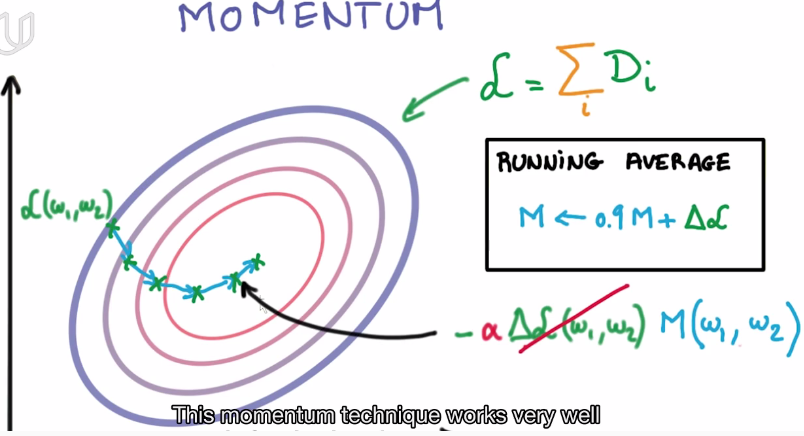 MOMENTUM
ℒ = Σ_i D_i
RUNNING AVERAGE
M ← 0.9 M + Δℒ
ℒ(ω₁, ω₂)
-α Δℒ(ω₁, ω₂) M(ω₁, ω₂)
This momentum technique works very well